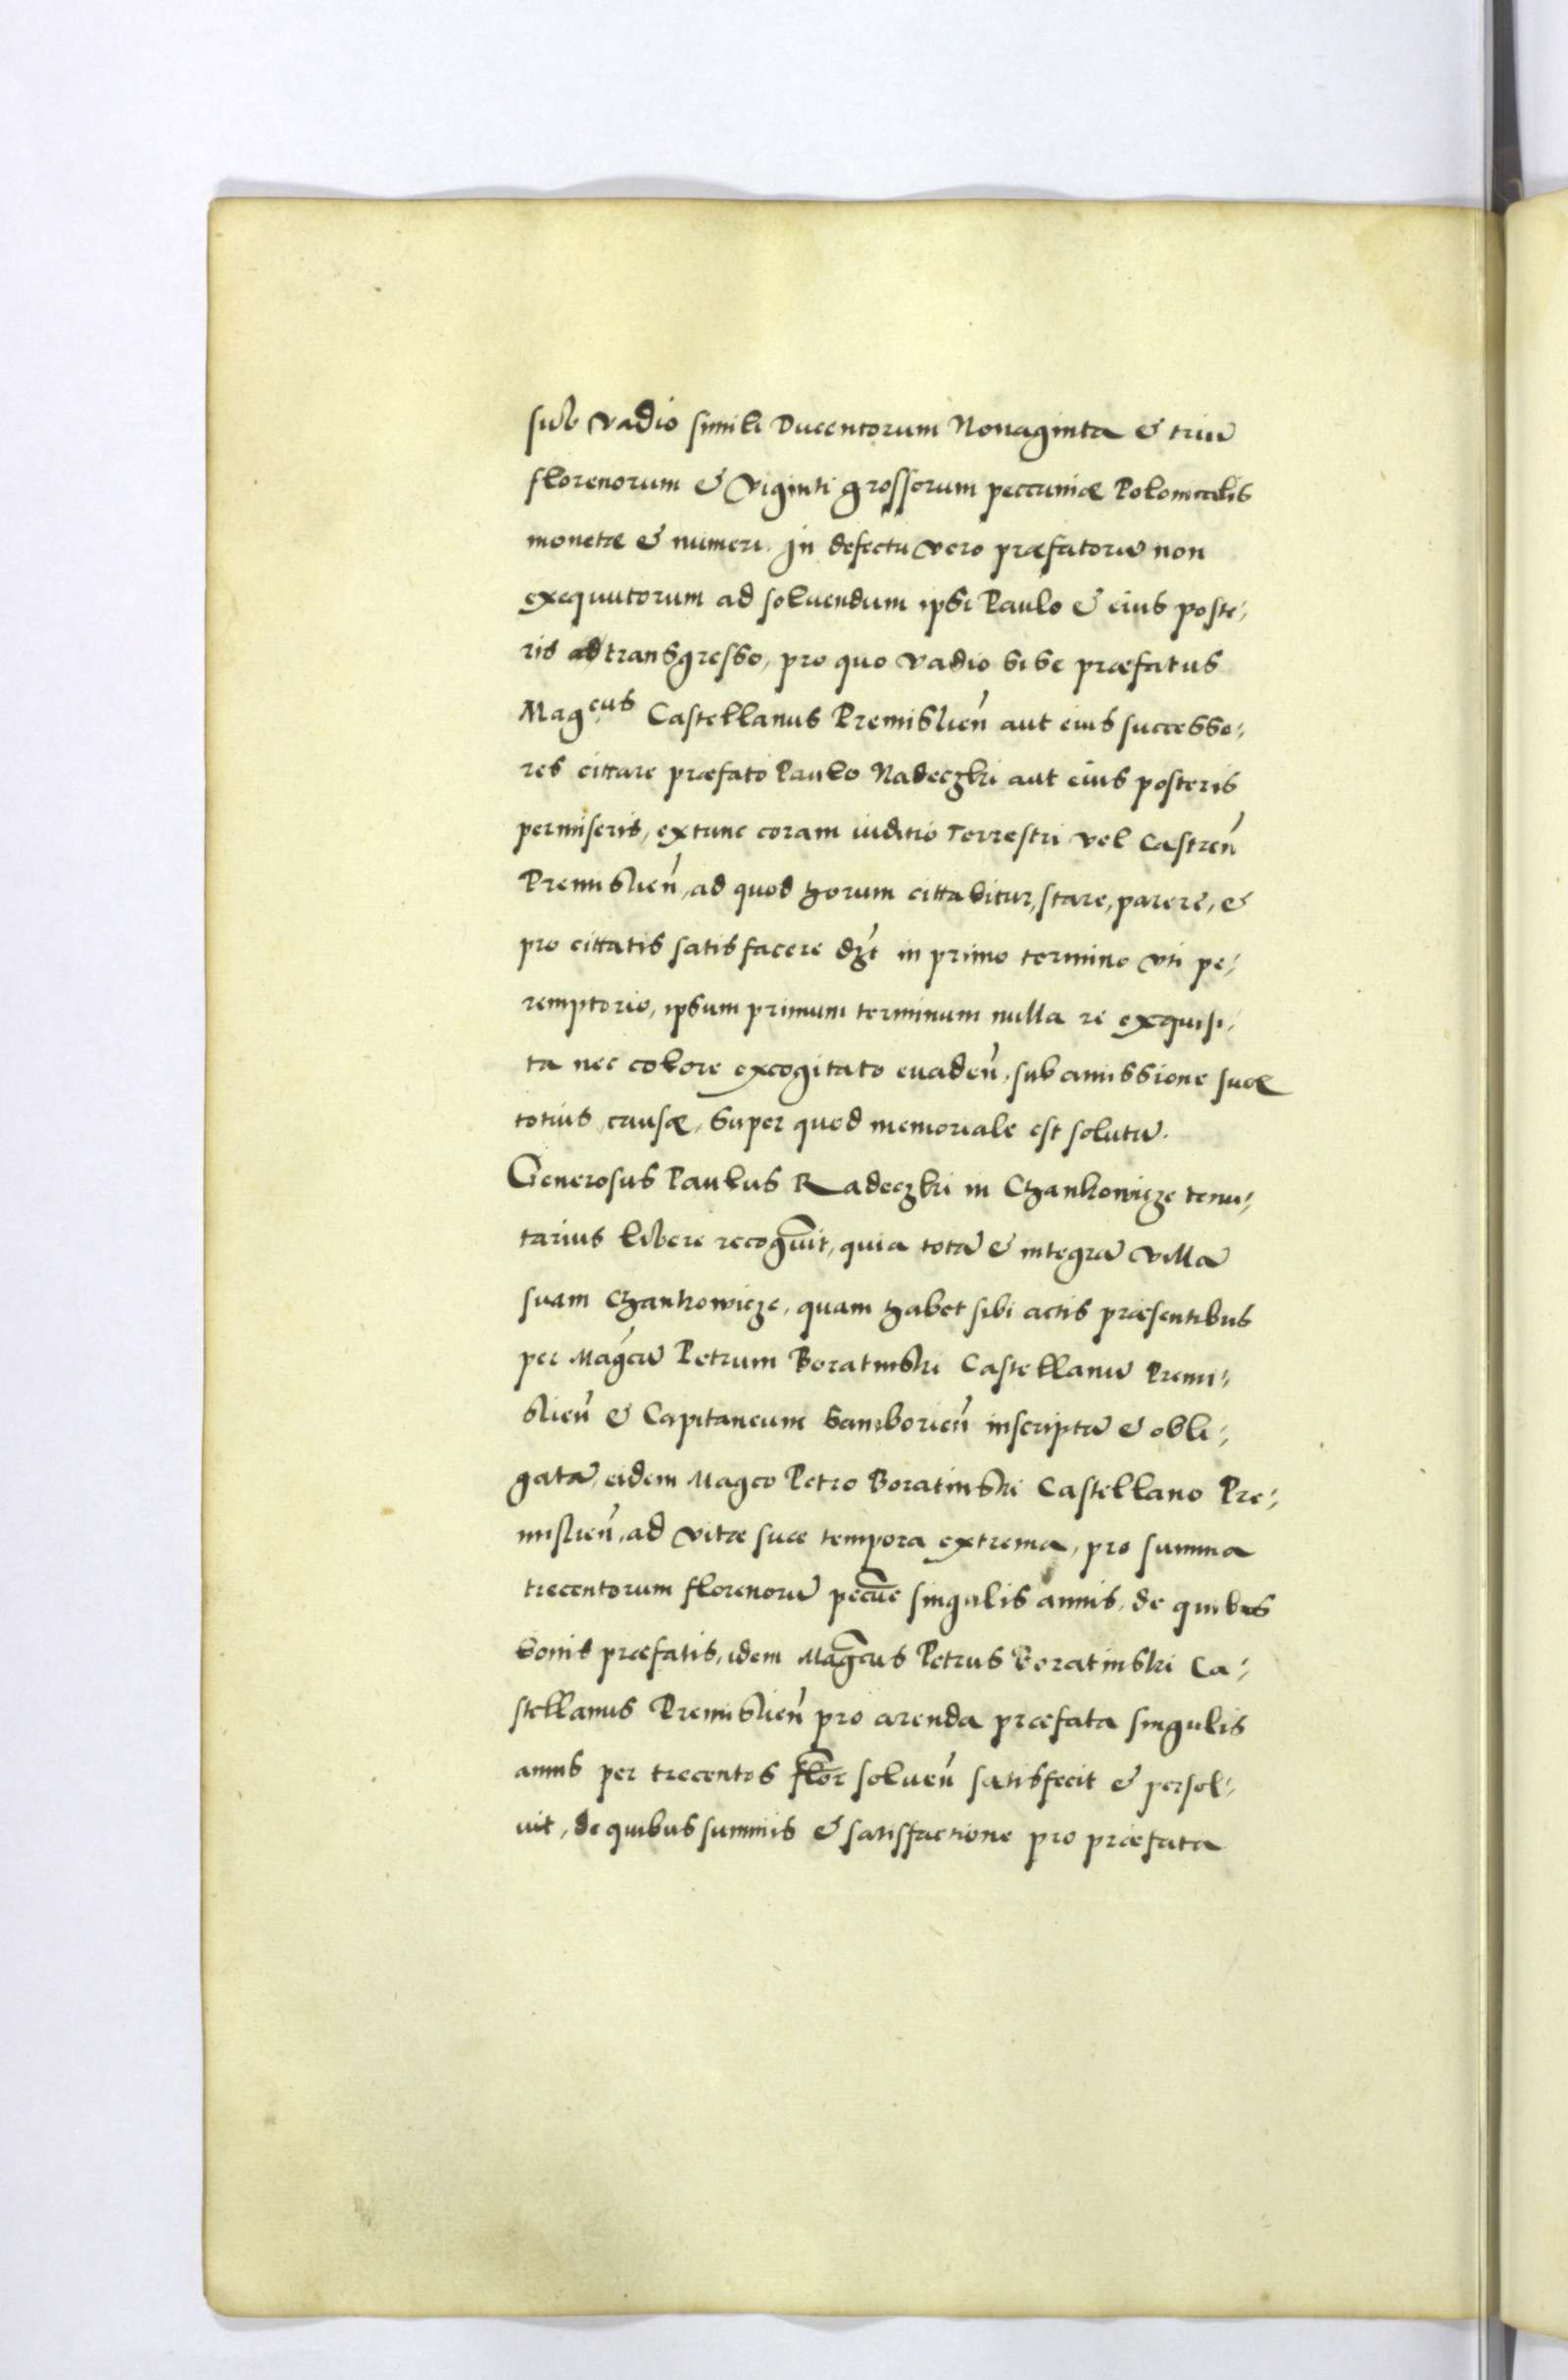 sub vadio simili Ducentorum Nonaginta & triū
florenorum & Viginti grossorum peccuniæ Polonicalis
monetæ & numeri. In defectu vero præfatorū non
exequutorum ad soluendum ipsi Paulo & eius poste⸗
ris transgresso, pro quo vadio si se præfatus
Magcus Castellanus Premislien̄ aut eius successo⸗
res cittare præfato Paulo Radeczki aut eius posteris
permiserit, extunc coram iuditio Terrestri vel Castren̄
Premislien̄, ad quod horum cittabitur, stare, parere, &
pro cittatis satisfacere dꝫt in primo termino vti pe⸗
remptorio, ipsum primum terminum nulla re exquisi⸗
ta nec colore excogitato euaden̄, sub amissione suæ
totius causæ, super quod memoriale est solutū.
Generosus Paulus Radeczki in Czankowicze tenu⸗
tarius libere recogūit, quia totā & integrā villā
suam Czankowicze, quam habet sibi actis præsentibus
per Magcū Petrum Boratinski Castellanū Premi⸗
slien̄ & Capitaneum Samborien̄ inscriptā & obli⸗
gatā, eidem Magco Petro Boratinski Castellano Pre⸗
mislien̄, ad vitæ suæ tempora extrema, pro summa
trecentorum florenorū pecūe singulis annis, de quibus
bonis præfatis, idem Magcus Petrus Boratinski Ca⸗
stellanus Premislien̄ pro arenda præfata singulis
annis per trecentos flor̄ soluen̄ satisfecit & persol⸗
uit, de quibus summis & satisfactione pro præfata